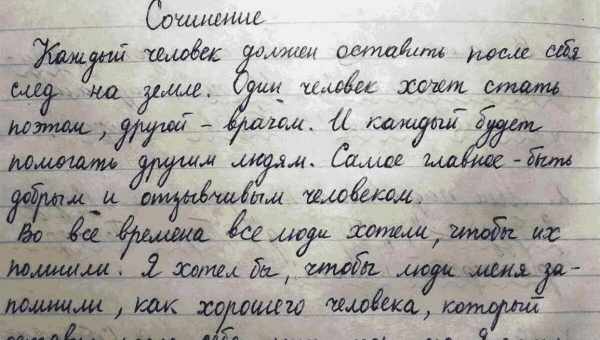 Сочинение
Каждый человек должен оставить после себя
след на земле. Один человек хочет стать
поэтом, другой – врачом. И каждый будет
помогать другим людям. Самое главное – быть
добрым и отзывчивым человеком.
Во все времена все люди хотели, чтобы их
помнили. Я хотел бы, чтобы люди меня за-
помнили, как хорошего человека, который